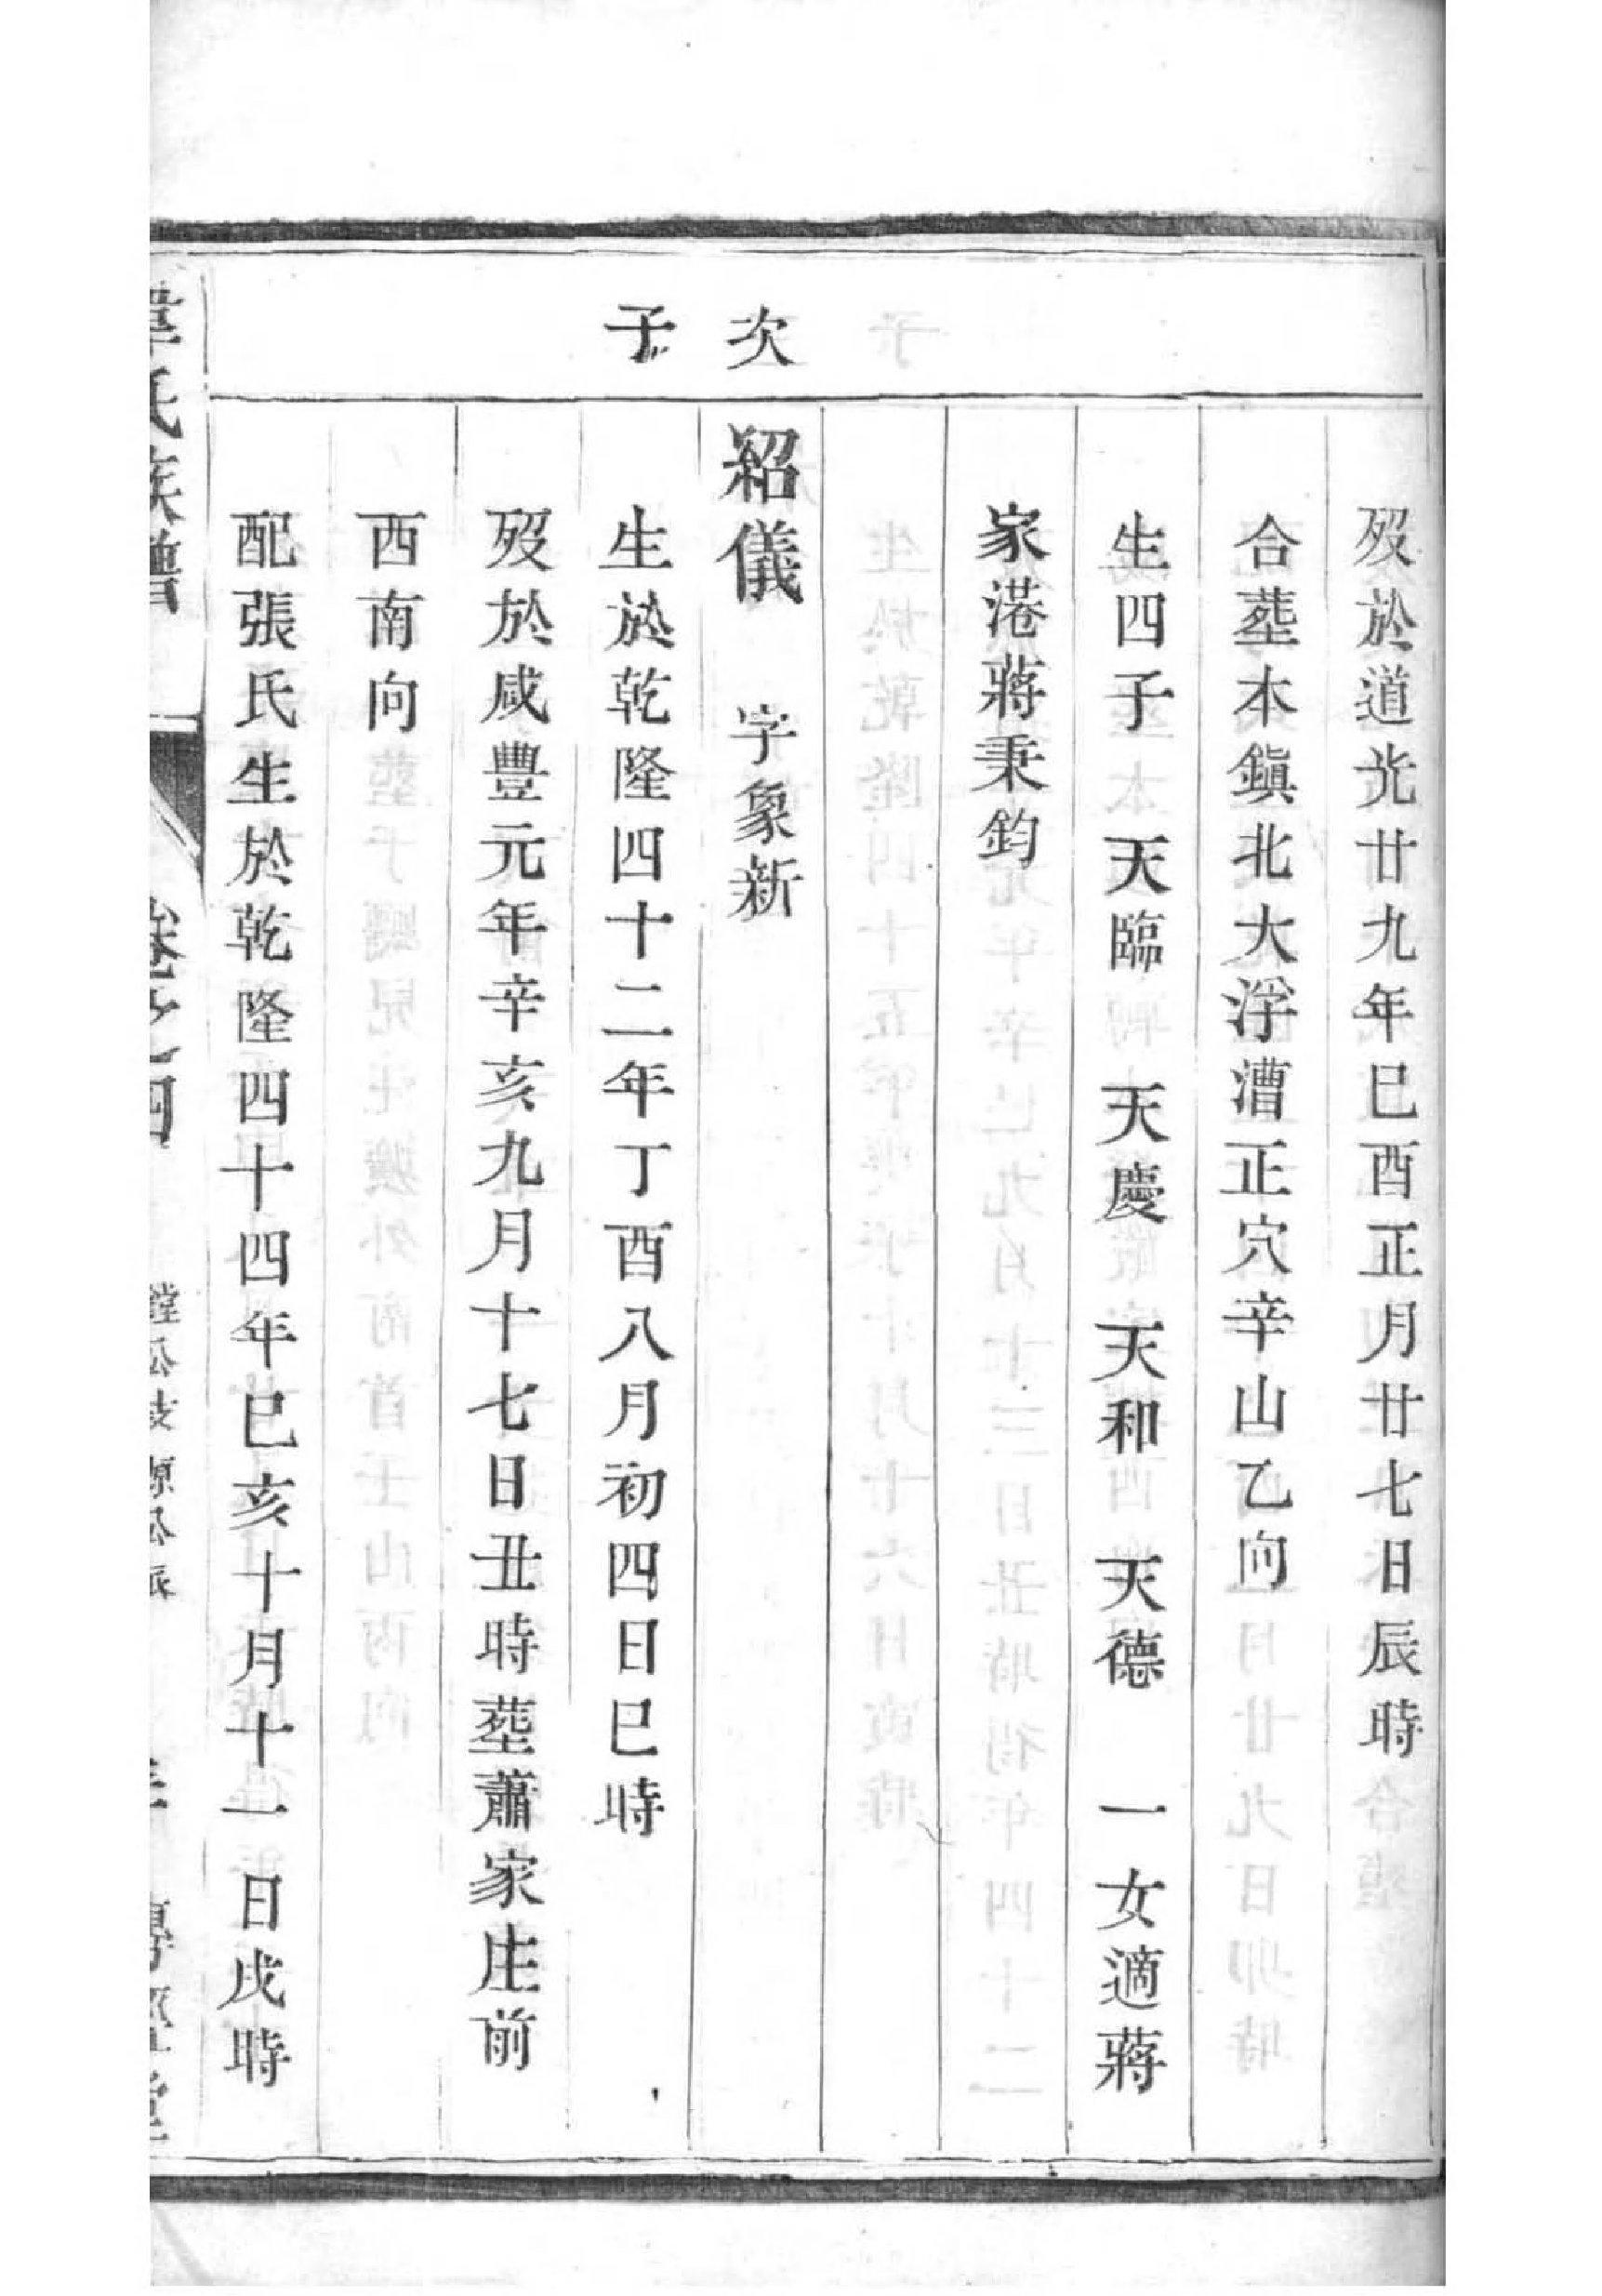 歿於道光廿九年巳酉正月廿七日辰時
合塟本鎭北大浮漕正穴辛山乙向
生四子 天臨 天慶 天和 天德 一女適蔣
家港蔣秉鈞
次子
紹儀 字象新
生於乾隆四十二年丁酉八月初四日巳時
歿於咸豐元年辛亥九月十七日丑時塟蕭家庄前
西南向
配張氏生於乾隆四十四年巳亥十月十一日戌時
氏族譜
卷之四